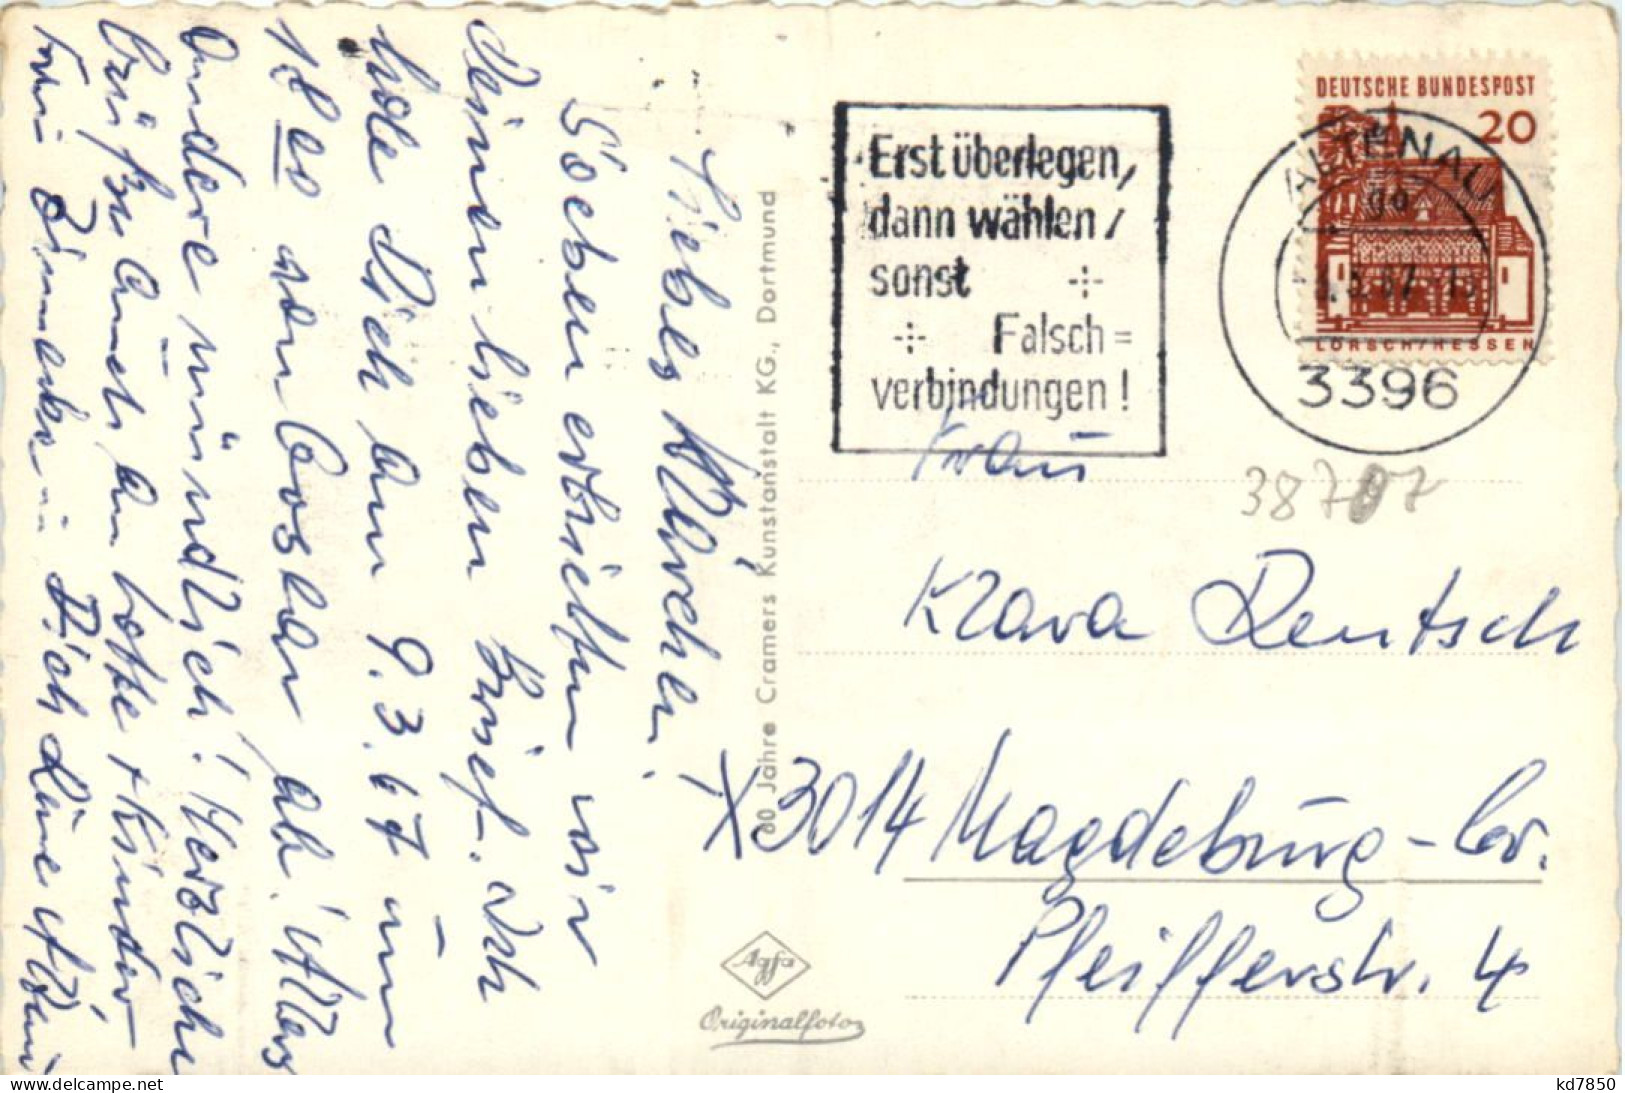 Liebes Klärchen!
Soeben erhielten wir
Deinen lieben Brief. Ich
hole Dich am 9.3.67 um
18 00 von Goslar ab. Alles
Andere mündlich! Herzliche
Grüße auch an Lotte + Kinder
Dich Deine
60 Jahre Cramers Kunstanstalt KG., Dortmund
Agfa
Originalfoto
Erst überlegen,
dann wählen,
sonst
Falsch=
verbindungen!
DEUTSCHE BUNDESPOST
20
LORSCH/HESSEN
ALTENAU
3396
Frau
Klara Deutsch
X 3014 Magdeburg - Gr.
Pfeifferstr. 4
kd7850